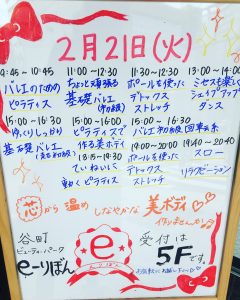 2月21日(火)
9:45~10:45
バレエのための
ピラティス
11:00~12:30
ちょっと頑張る
基礎バレエ
11:30~12:30
ポールを使った
デトックス
ストレッチ
13:00~14:00
ミセスも楽しむ
シェイプアップ
ダンス
15:00~16:30
ゆっくりしっかり
基礎バレエ
15:00~16:00
ピラティスで
作る美ボディ
18:15~19:30
ていねいに
動くピラティス
15:00~16:30
バレエ
ポールを使った
デトックス
ストレッチ
19:40~20:40
スロー
リラクゼーション
芯から温め しなやかな 美ボディ
作りませんか
谷町
ビューティーパーク
e-りぼん
e
e-りぼん
受付は
5Fです。